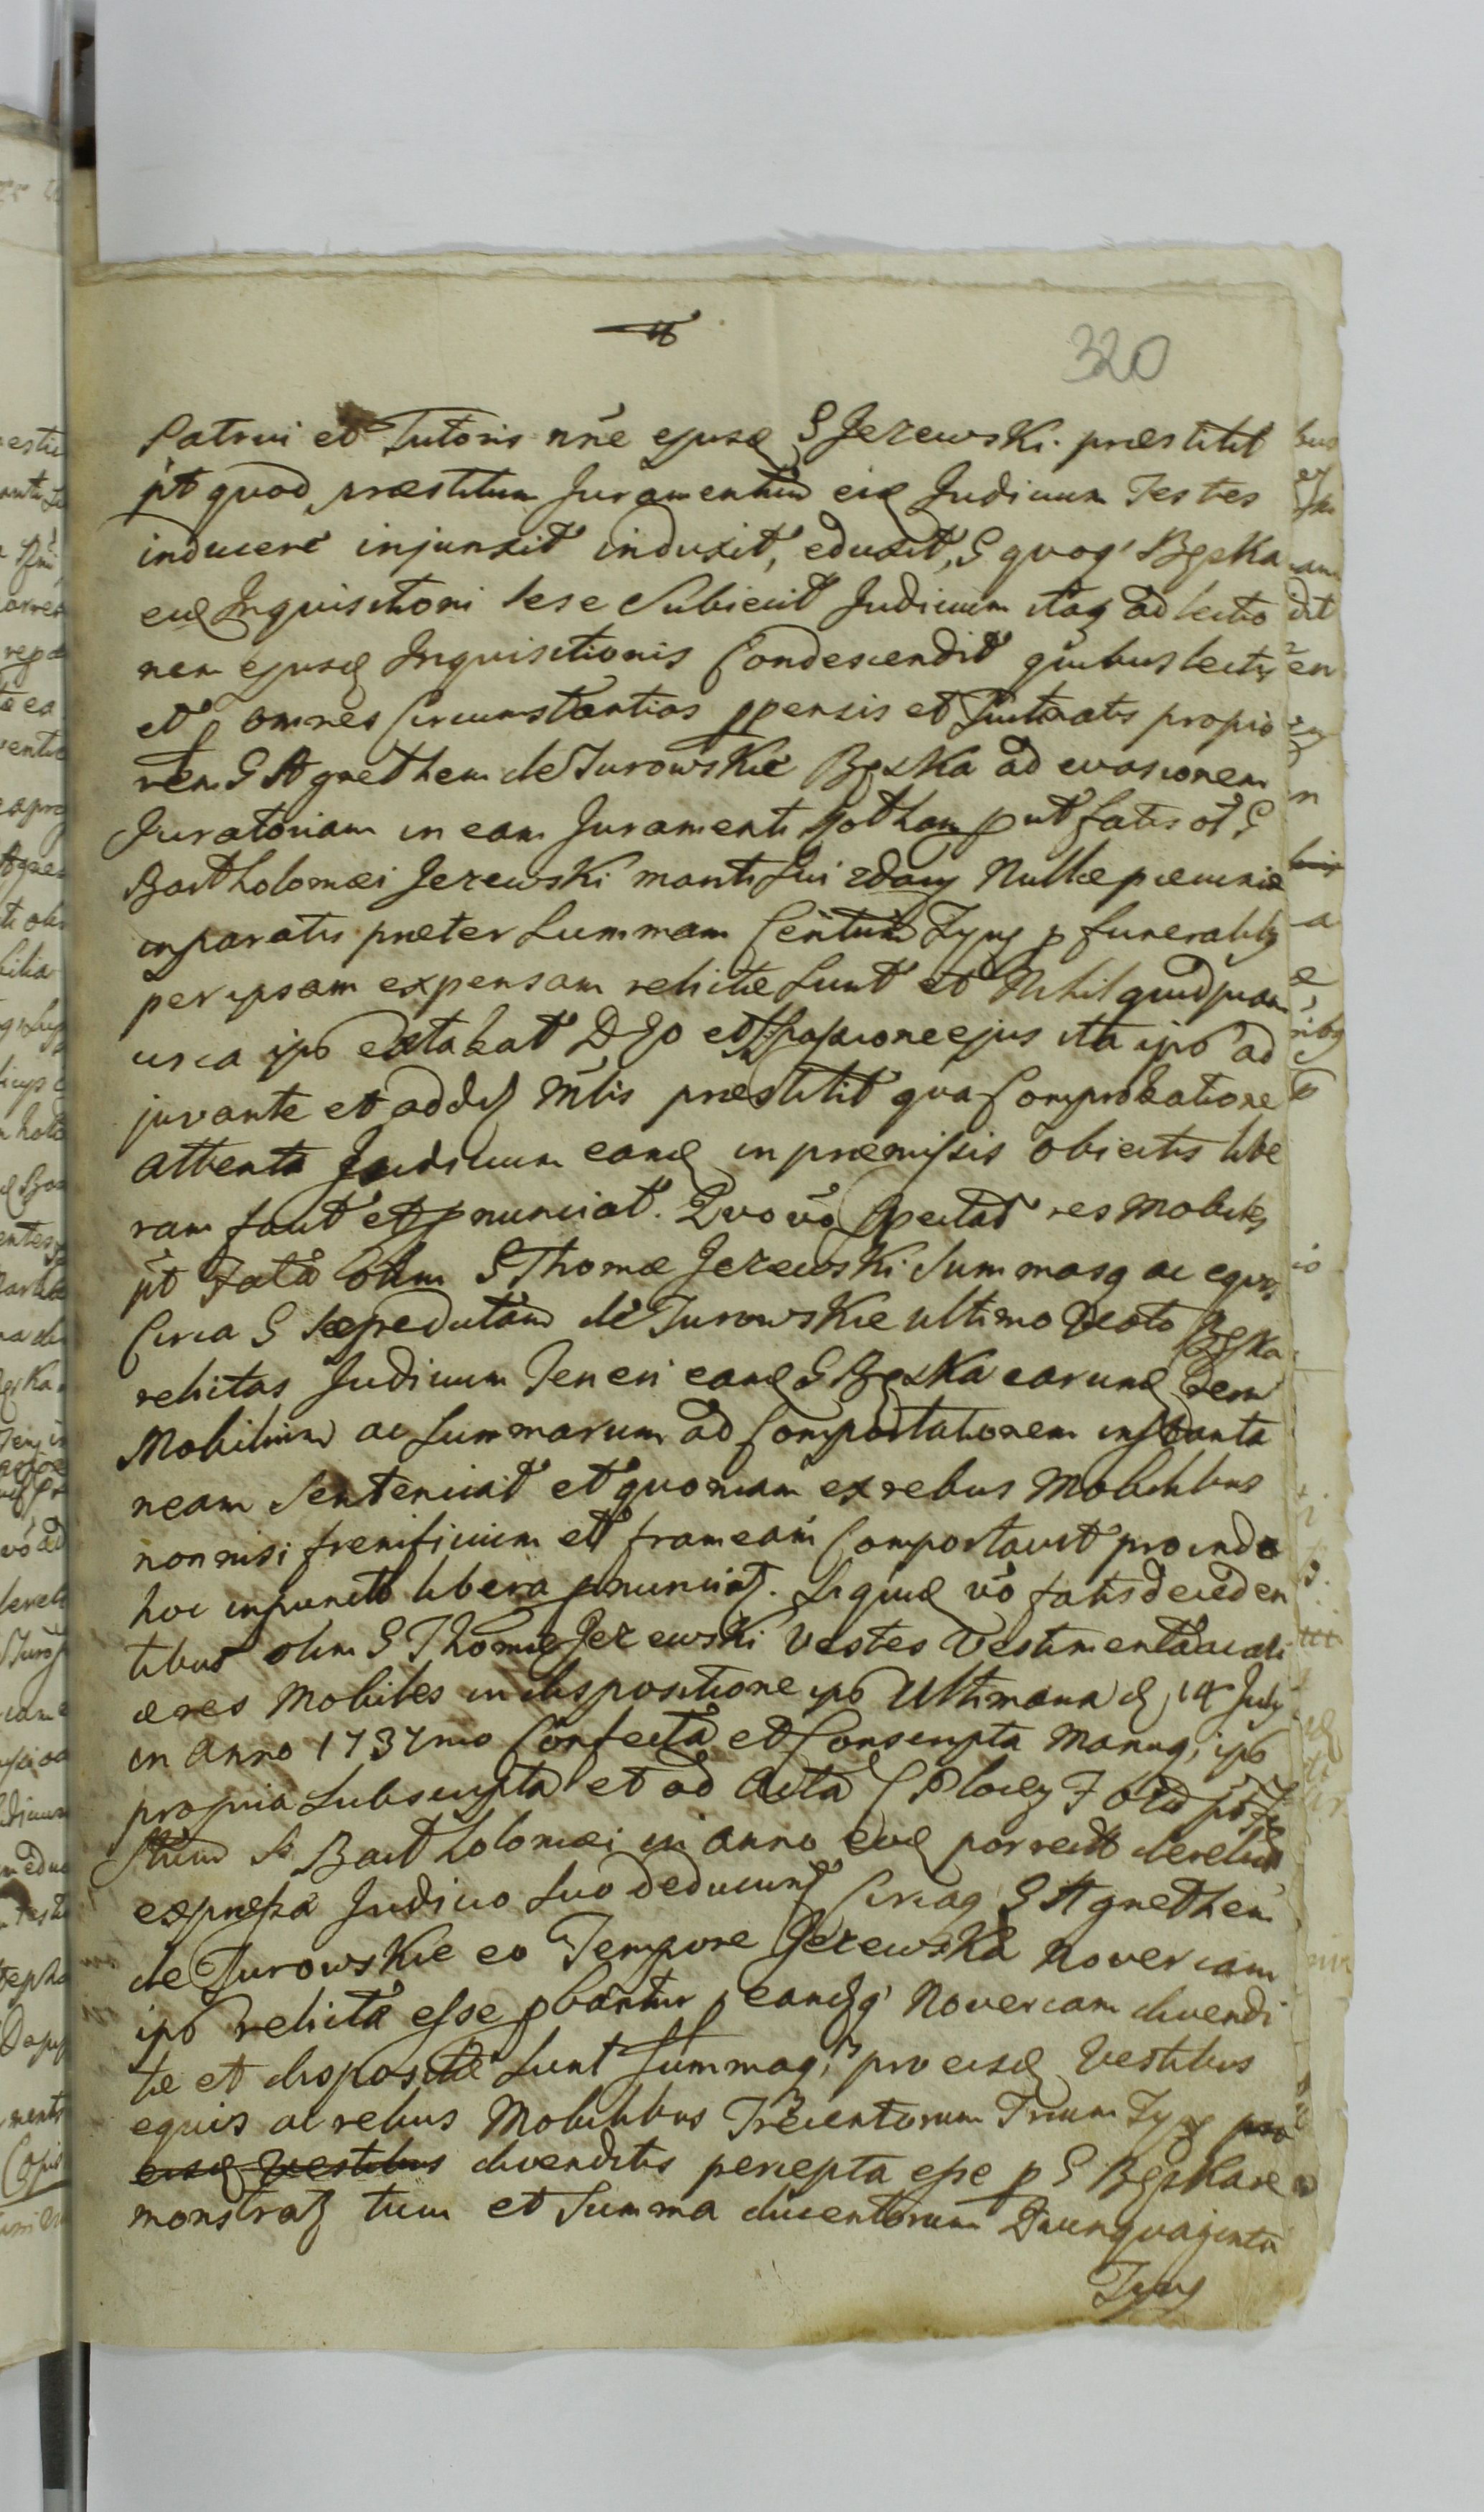 320
Patrui et Tutoris nñe ejusq G Jezewski. præstitit
pt quod præstitum Juramentum eiq Judicium Testes
inducere injunxit induxit, eduxit, G quoq' Bęska
eiq Inquisitioni sese Subiecit Judicium itaq ad lectio
nem ejusq Inquisitionis Condescendit quibus lectis
et omnes Circumstantias ppensis et propio
rem G Agnethem de Turowskie Bęska ad evasionem
Juratoriam in eam Juramenti Rotham put fatis ol G
Bartholomæi Jezewski mariti Sui Nullæ pecuniæ
inparatis præter Summam Centum Tynf p funeralibg
per ipsam expensam relictæ Sunt et Nihil quidquam
circa ipö extabat D Jo et passione ejus ita ipö ad
juvante et Mtis præstitit qua Comprobatione
attenta Judicium eamq in præmissis obiectis libe
ram facit et pnunciat. Quo vö Spectat res mobiles
pt Fata olim G Thomæ Jezewski Summasq ac equos
Circa G sæpedictam de Turowskie ultimo Bęska
relictas Judicium Teneri eamq G Bęska earumq rerum
Mobilium ac Summarum ad Comportationem instanta
neam Sentenciat et quoniam ex rebus Mobilibus
nonnisi frenificium et frameam Comportavit proinde
hoc inpuncto libera pnunciat. Siquid vö fatis deceden
tibus olim G Thomæ Jezewski Vestes Vestimenta
res Mobiles in dispositione ipö Ultimaria d 14 July
in Anno 1737mo Confecta et Conscripta Manuq ipö
propria Subscripta et ad Acta
S Bartholomæi in Anno eoq porrecto
expressa Judicio Suo deducunt Circaq G Agnethem
de Turowskie eo Tempore Jezewska Novercam
ipö relicta esse pbantur p eamq' Novercam divendi
tæ et dispositæ Sunt Summaq' pro eisq Vestibus
equis ac rebus Mobilibus Trecentorum Trium Tynf pro
eisq Vestibus divenditis percepta esse p G Bęska re
monstrat tum et Summa ducentorum Quinquaginta
Tynf